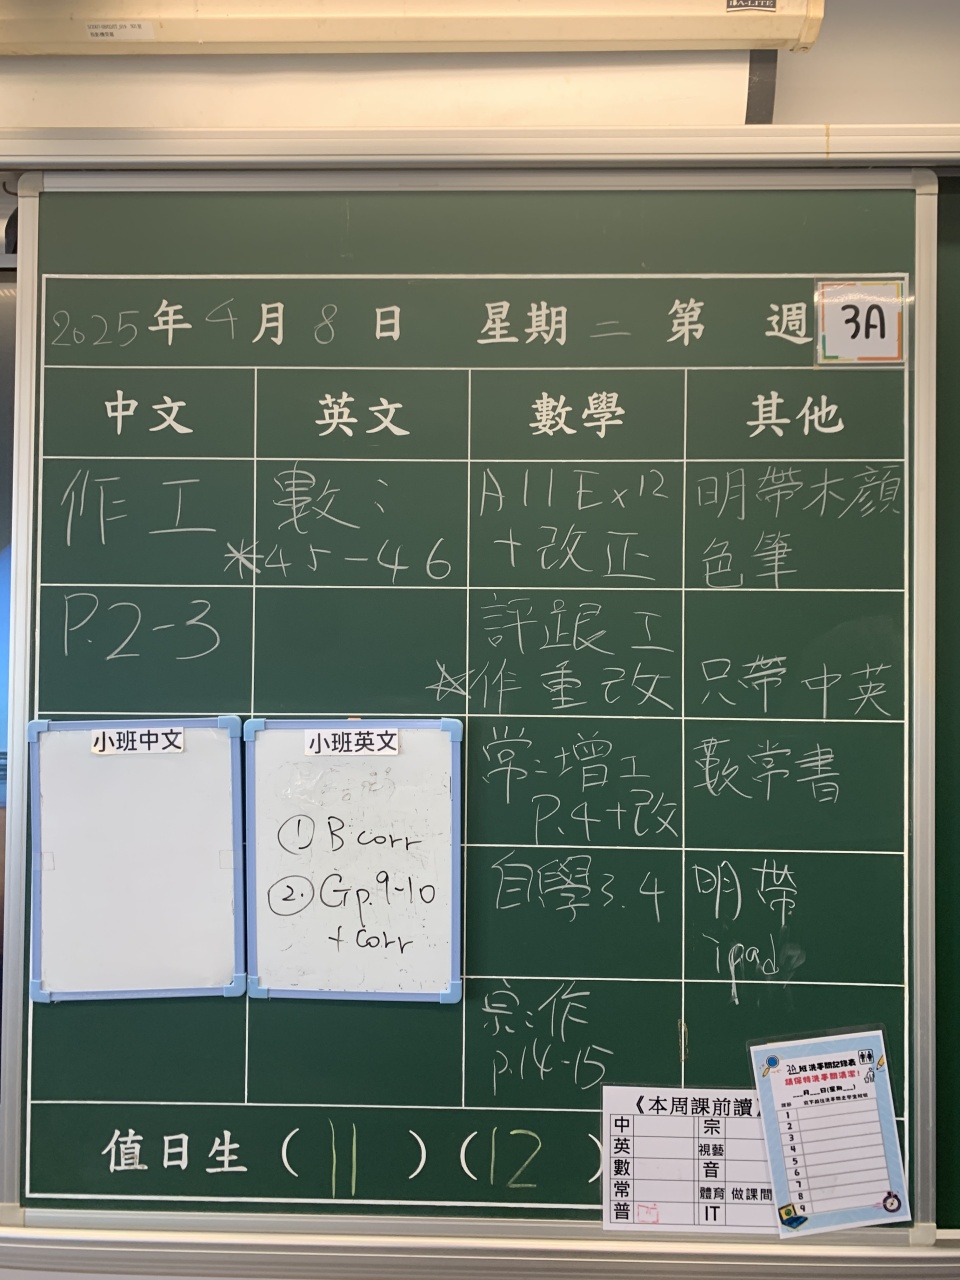 DA-LITE
2025年4月8日 星期二 第 週
3A
中文
英文
數學
其他
作工
P.2-3
數:
*45-46
A11Ex12
+改正
評跟工
☆作重改
常:增工
P.4+改
自學3.4
p.14-15
明帶木顏
色筆
只帶中英
數常書
明帶
ipad
小班中文
小班英文
① B corr
②. Gp.9-10
+ corr
值日生(11)(12)
《本周課前讀
中
宗
英
視藝
數
音
常
體育 做課間
普
IT
3A班洗手間記錄表
請保持洗手間清潔!
1
2
3
4
5
6
7
8
9